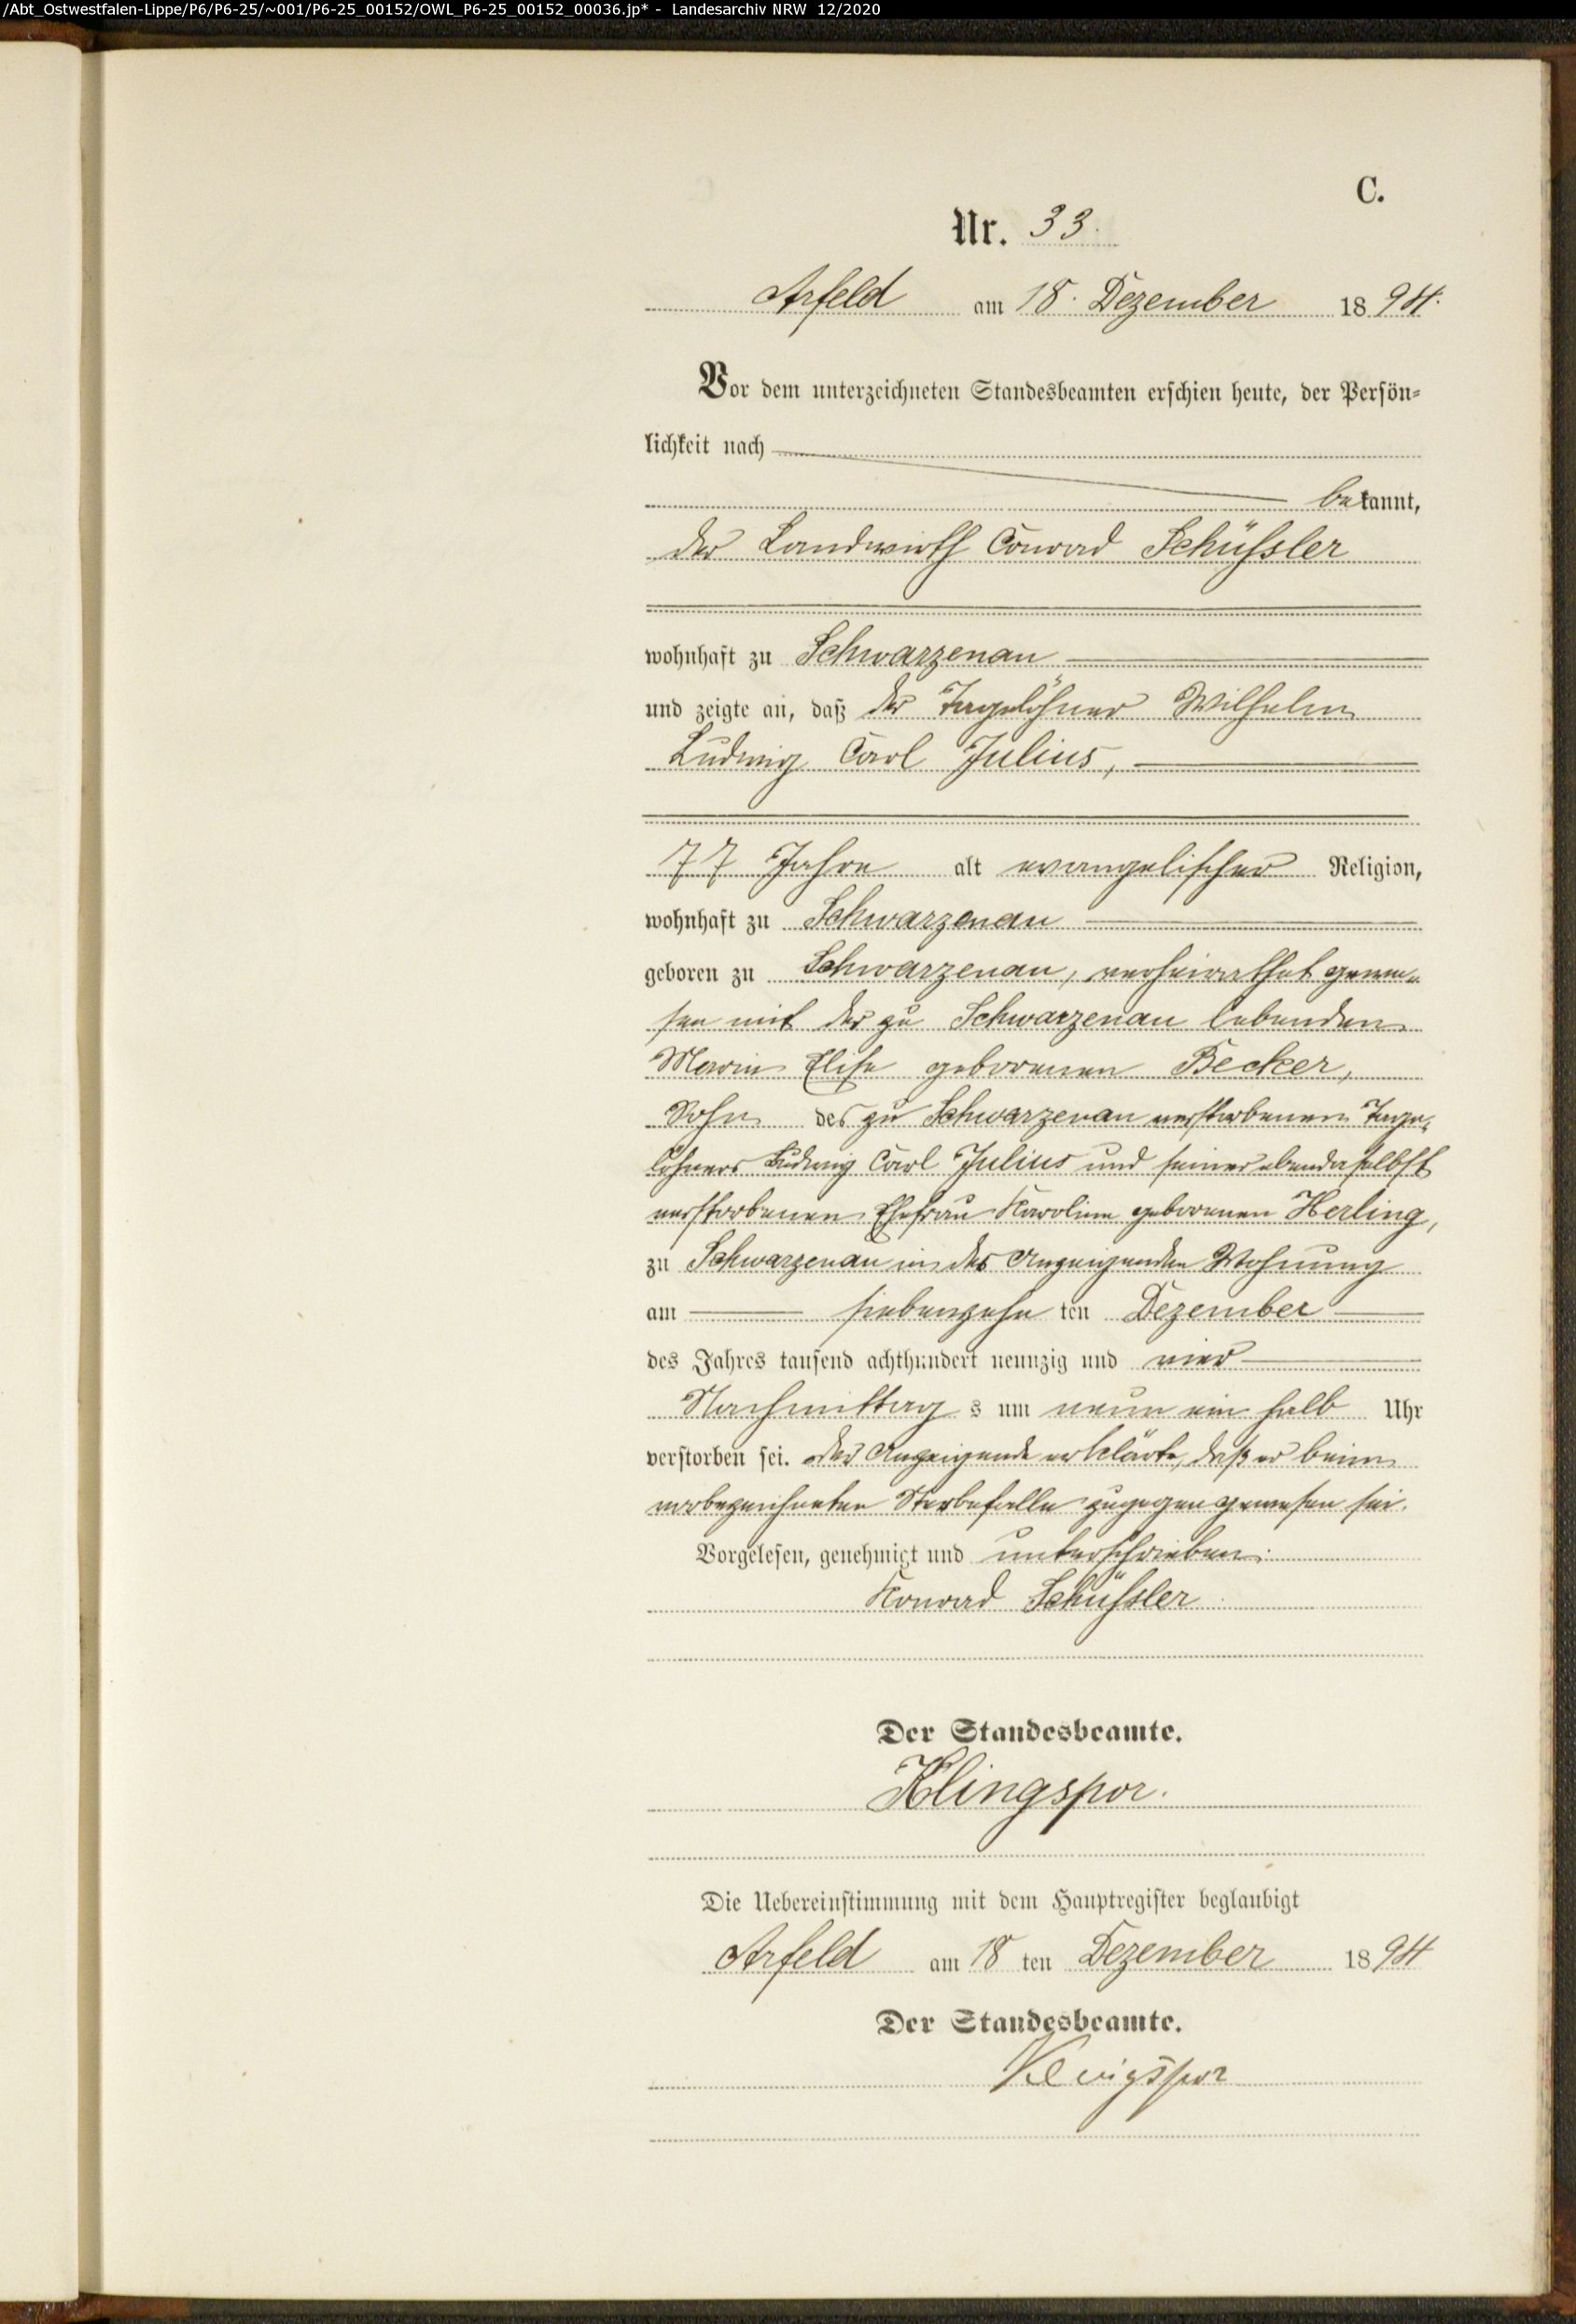 /Abt_Ostwestfalen-Lippe/P6/P6-25/~001/P6-25_00152/OWL_P6-25_00152_00036.jp* - Landesarchiv NRW 12/2020
C.
Nr. 33.
Arfeld am 18. Dezember 1894.
Vor dem unterzeichneten Standesbeamten erschien heute, der Persön-
lichkeit nach
bekannt,
der Landwirth Conrad Schüssler
wohnhaft zu Schwarzenau
und zeigte an, daß der Tagelöhner Wilhelm
Ludwig Carl Julius,
77 Jahre alt evangelischer Religion,
wohnhaft zu Schwarzenau
geboren zu Schwarzenau, verheirathet gewe-
sen mit der zu Schwarzenau lebenden
Marie Elise geborenen Becker,
Sohn des zu Schwarzenau verstorbenen Tage-
löhners Ludwig Carl Julius und seiner ebendaselbst
verstorbenen Ehefrau Karoline geborenen Herling,
zu Schwarzenau in des Anzeigenden Wohnung
am siebenzehn ten Dezember
des Jahres tausend achthundert neunzig und vier
Nachmittag s um neun ein halb Uhr
verstorben sei. Der Anzeigende erklärte, daß er beim
vorbezeichneten Sterbefalle zugegen gewesen sei.
Vorgelesen, genehmigt und unterschrieben.
Konrad Schüssler
Der Standesbeamte.
Klingspor.
Die Uebereinstimmung mit dem Hauptregister beglaubigt
Arfeld am 18 ten Dezember 1894
Der Standesbeamte.
Klingspor